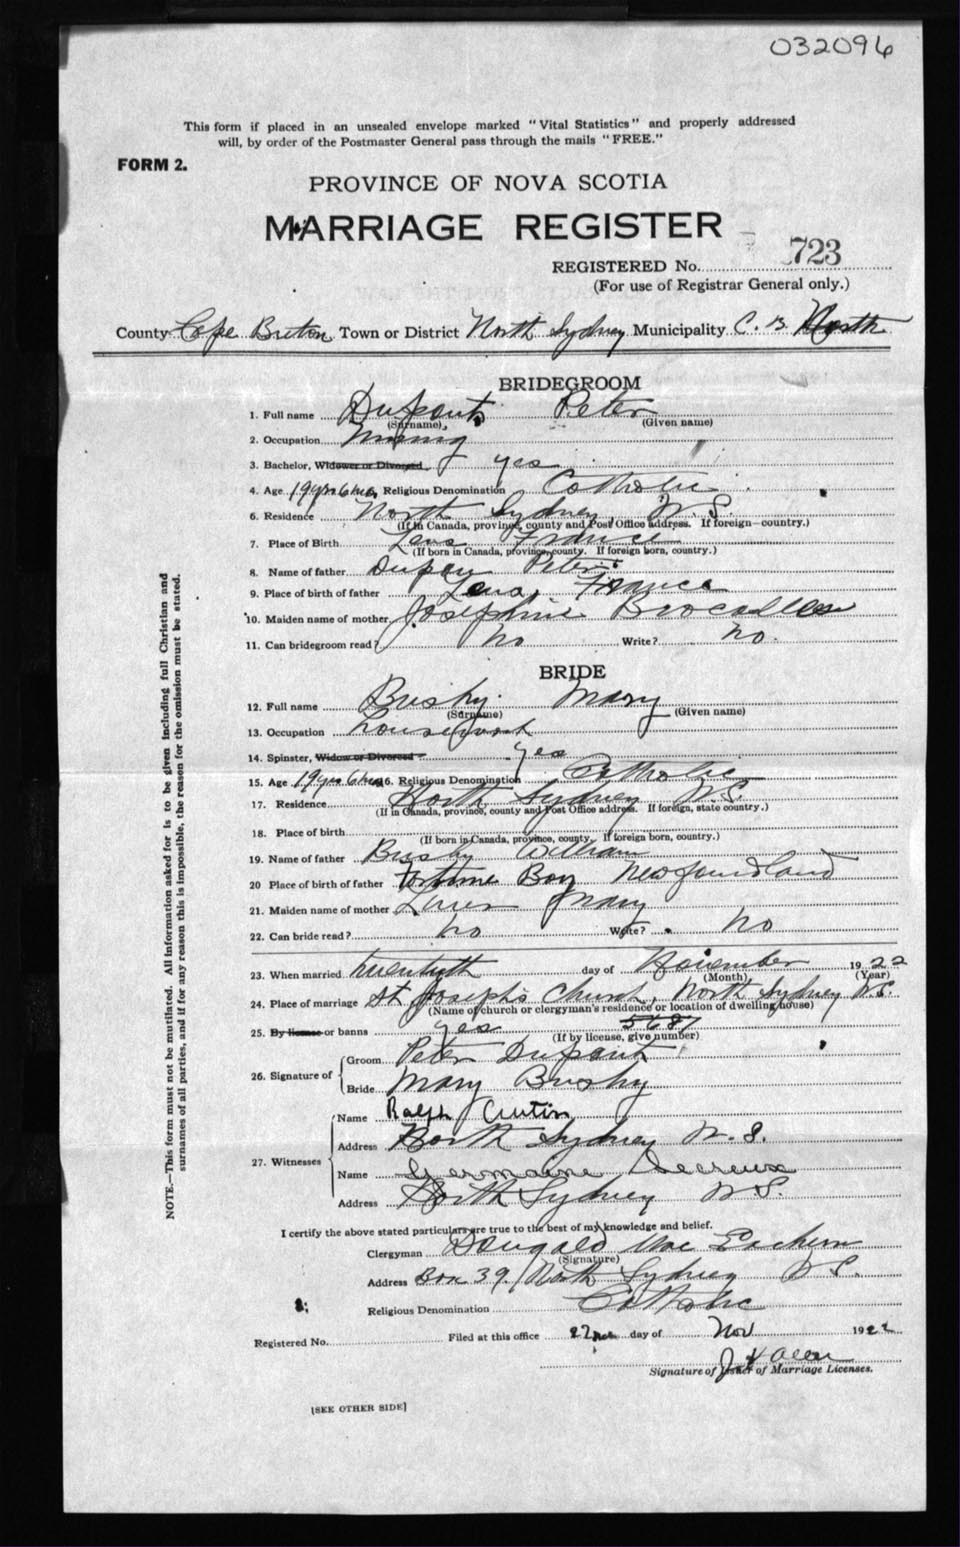 032096
This form if placed in an unsealed envelope marked "Vital Statistics" and properly addressed
will, by order of the Postmaster General pass through the mails "FREE."
FORM 2.
PROVINCE OF NOVA SCOTIA
MARRIAGE REGISTER
REGISTERED No. 723
(For use of Registrar General only.)
County Cape Breton Town or District North Sydney Municipality C. B North
BRIDEGROOM
1. Full name Dupont Peter
(Surname) (Given name)
2. Occupation Mining
3. Bachelor, Widower or Divorced yes
4. Age 19yrs 6mos Religious Denomination Catholic
6. Residence North Sydney, N.S.
(If in Canada, province, county and Post Office address. If foreign—country.)
7. Place of Birth Lens France
(If born in Canada, province, county. If foreign born, country.)
8. Name of father Peter
9. Place of birth of father Lens, France
10. Maiden name of mother Josephine
11. Can bridegroom read? No Write? No.
BRIDE
12. Full name Bushy Mary
(Surname) (Given name)
13. Occupation housework
14. Spinster, Widow or Divorced yes
15. Age 19yrs 6mos 16. Religious Denomination Catholic
17. Residence North Sydney N.S.
(If in Canada, province, county and Post Office address. If foreign, state country.)
18. Place of birth
(If born in Canada, province, county. If foreign born, country.)
19. Name of father Bushy William
20 Place of birth of father Fortune Bay Newfoundland
21. Maiden name of mother Mary
22. Can bride read? No Write? No
23. When married twentyth day of November 1922
(Month) (Year)
24. Place of marriage St Joseph's Church, North Sydney N.S.
(Name of church or clergyman's residence or location of dwelling house)
25. By license or banns yes 5687
(If by license, give number)
26. Signature of
Groom Peter Dupont
Bride Mary Bushy
27. Witnesses
Name Ralph Curtin
Address North Sydney N.S.
Name Germaine Decreux
Address North Sydney N.S.
I certify the above stated particulars are true to the best of my knowledge and belief.
Clergyman Dougald Mac Eachern
(Signature)
Address Box 39, North Sydney N.S.
Religious Denomination Catholic
Registered No. Filed at this office 22nd day of Nov 1922
Signature of Issuer of Marriage Licenses.
[SEE OTHER SIDE]
NOTE.—This form must not be mutilated. All information asked for is to be given including full Christian and
surnames of all parties, and if for any reason this is impossible, the reason for the omission must be stated.